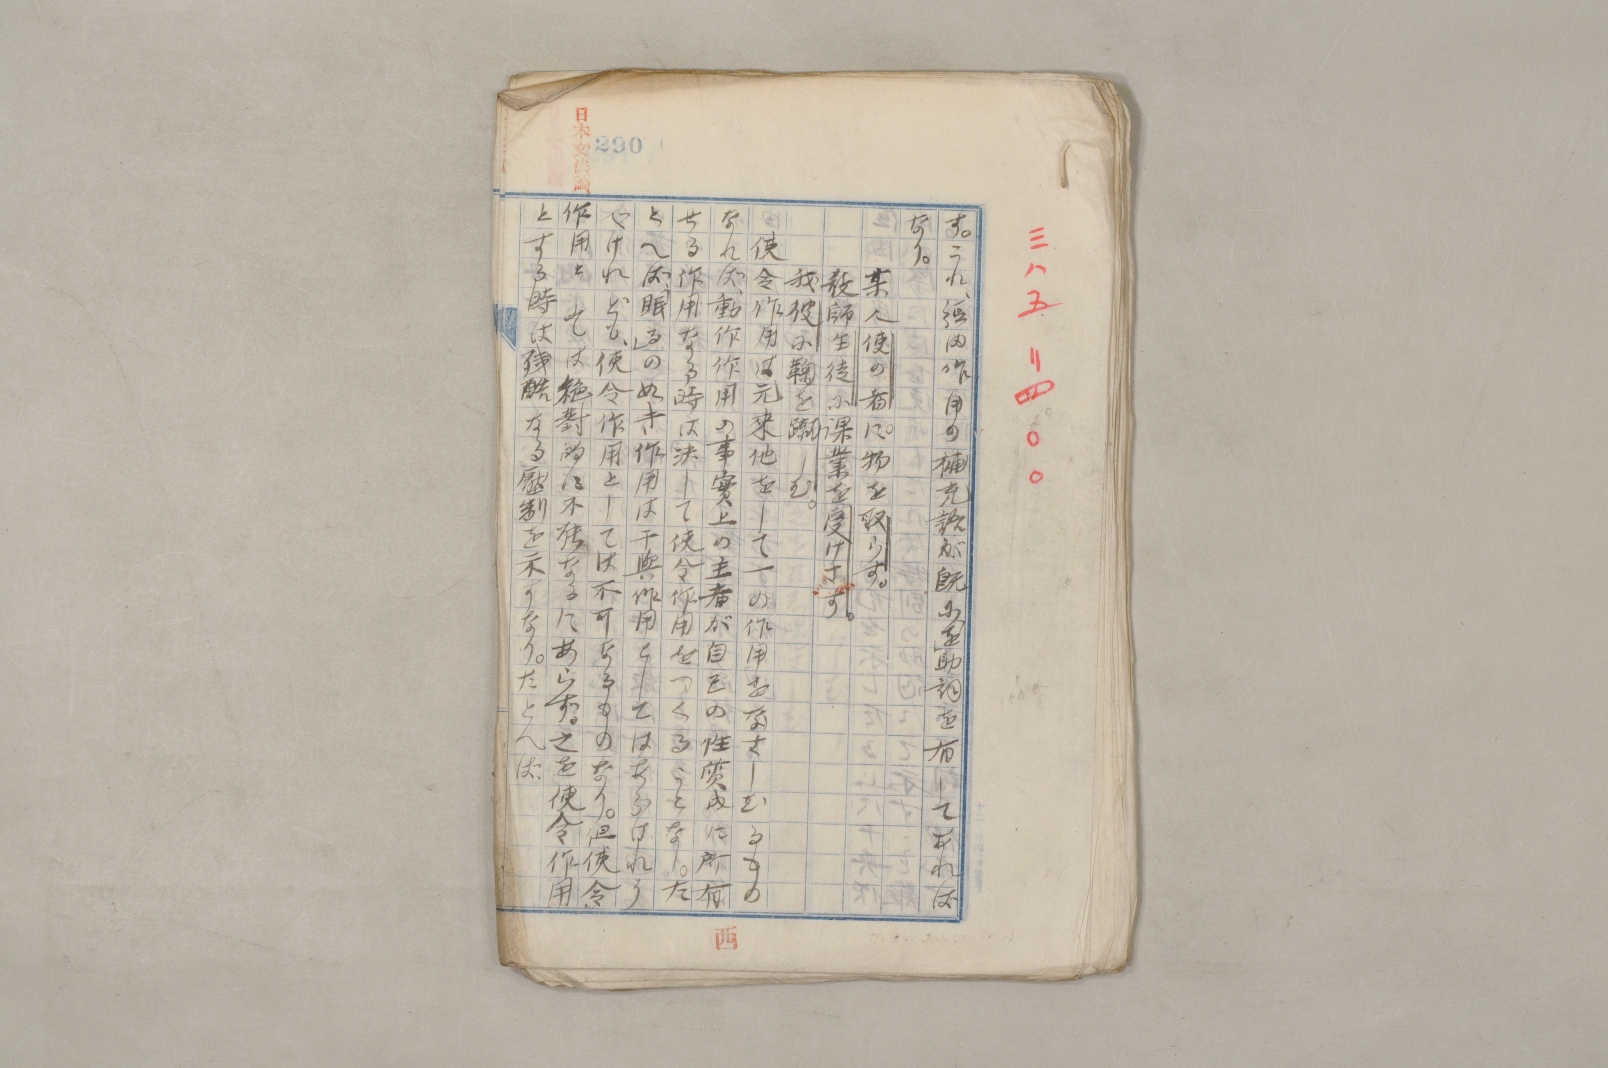 三八五リ四〇〇
日本文法論
290
す。これ、経由作用の補充語が既に、を助詞を有しておれば
なり。
某人使の者に物を取らす。
教師生徒に課業を受けさす。
我彼に鞠を蹴しむ。
使令作用は元来他をして一の作用をなさしむるもの
なれば、動作作用の事實上の主者が自己の性質内に所有
せる作用なる時は決して使令作用をつくることなし。た
とへば、「眠る」の如き作用は干與作用としてはあらはれう
べけれども、使令作用としては不可なるものなり。但使令
作用としては絶對的に不能なるにあらず。之を使令作用
とする時は殘酷なる壓制を示すなり。たとへば、
西